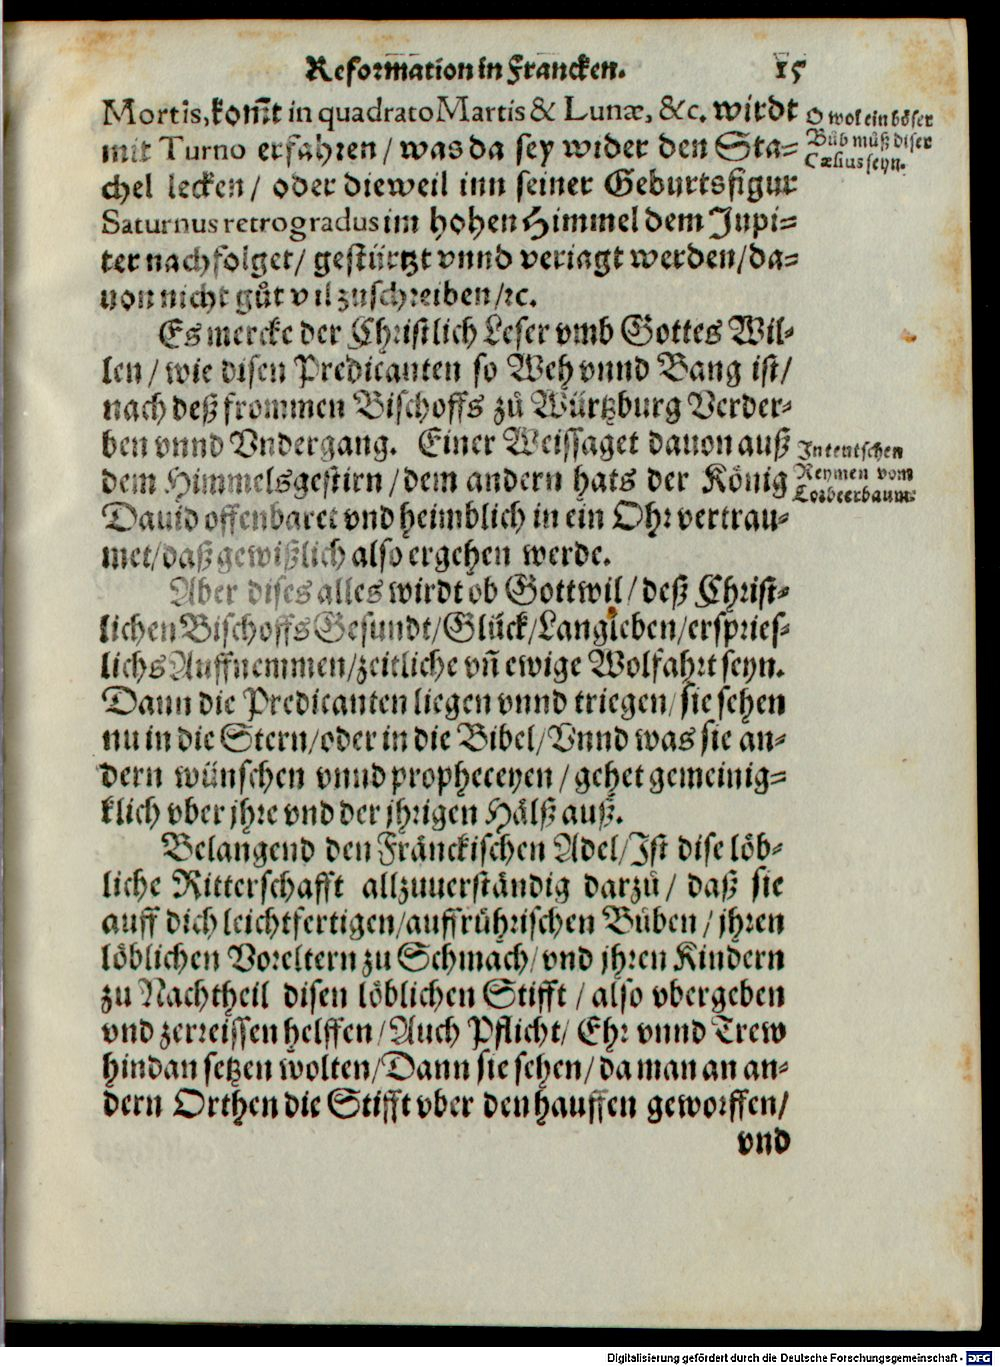 Reformation in Francken. 15
Mortis, kom̃t in quadrato Martis & Lunæ, &c. wirdt
mit Turno erfahren / was da sey wider den Sta-
chel lecken / oder dieweil inn seiner Geburtsfigur
Saturnus retrogradus im hohen Himmel dem Jupi-
ter nachfolget / gestürtzt vnnd veriagt werden / da-
uon nicht gůt vil zuschreiben / ꝛc.
O wol ein böser
Bůb můß diser
Cælius seyn.
Es mercke der Christlich Leser vmb Gottes Wil-
len / wie disen Predicanten so Weh vnnd Bang ist /
nach deß frommen Bischoffs zů Würtzburg Verder-
ben vnnd Vndergang. Einer Weissaget dauon auß
dem Himmelsgestirn / dem andern hats der König
Dauid offenbaret vnd heimblich in ein Ohr vertrau-
met / daß gewißlich also ergehen werde.
In teutschen
Reymen vom
Lorbeerbaum.
Aber dises alles wirdt ob Gott wil / deß Christ-
lichen Bischoffs Gesundt / Glück / Langleben / erspries-
lichs Auffnemmen / zeitliche vñ ewige Wolfahrt seyn.
Dann die Predicanten liegen vnnd triegen / sie sehen
nu in die Stern / oder in die Bibel / Vnnd was sie an-
dern wünschen vnnd propheceyen / gehet gemeinig-
klich vber jhre vnd der jhrigen Hälß auß.
Belangend den Fränckischen Adel / Ist dise löb-
liche Ritterschafft allzuuerständig darzů / daß sie
auff dich leichtfertigen / auffrührischen Bůben / jhren
löblichen Voreltern zu Schmach / vnd jhren Kindern
zu Nachtheil disen löblichen Stifft / also vbergeben
vnd zerreissen helffen / Auch Pflicht / Ehr vnnd Trew
hindan setzen wolten / Dann sie sehen / da man an an-
dern Orthen die Stifft vber den hauffen geworffen /
vnd
Digitalisierung gefördert durch die Deutsche Forschungsgemeinschaft - DFG